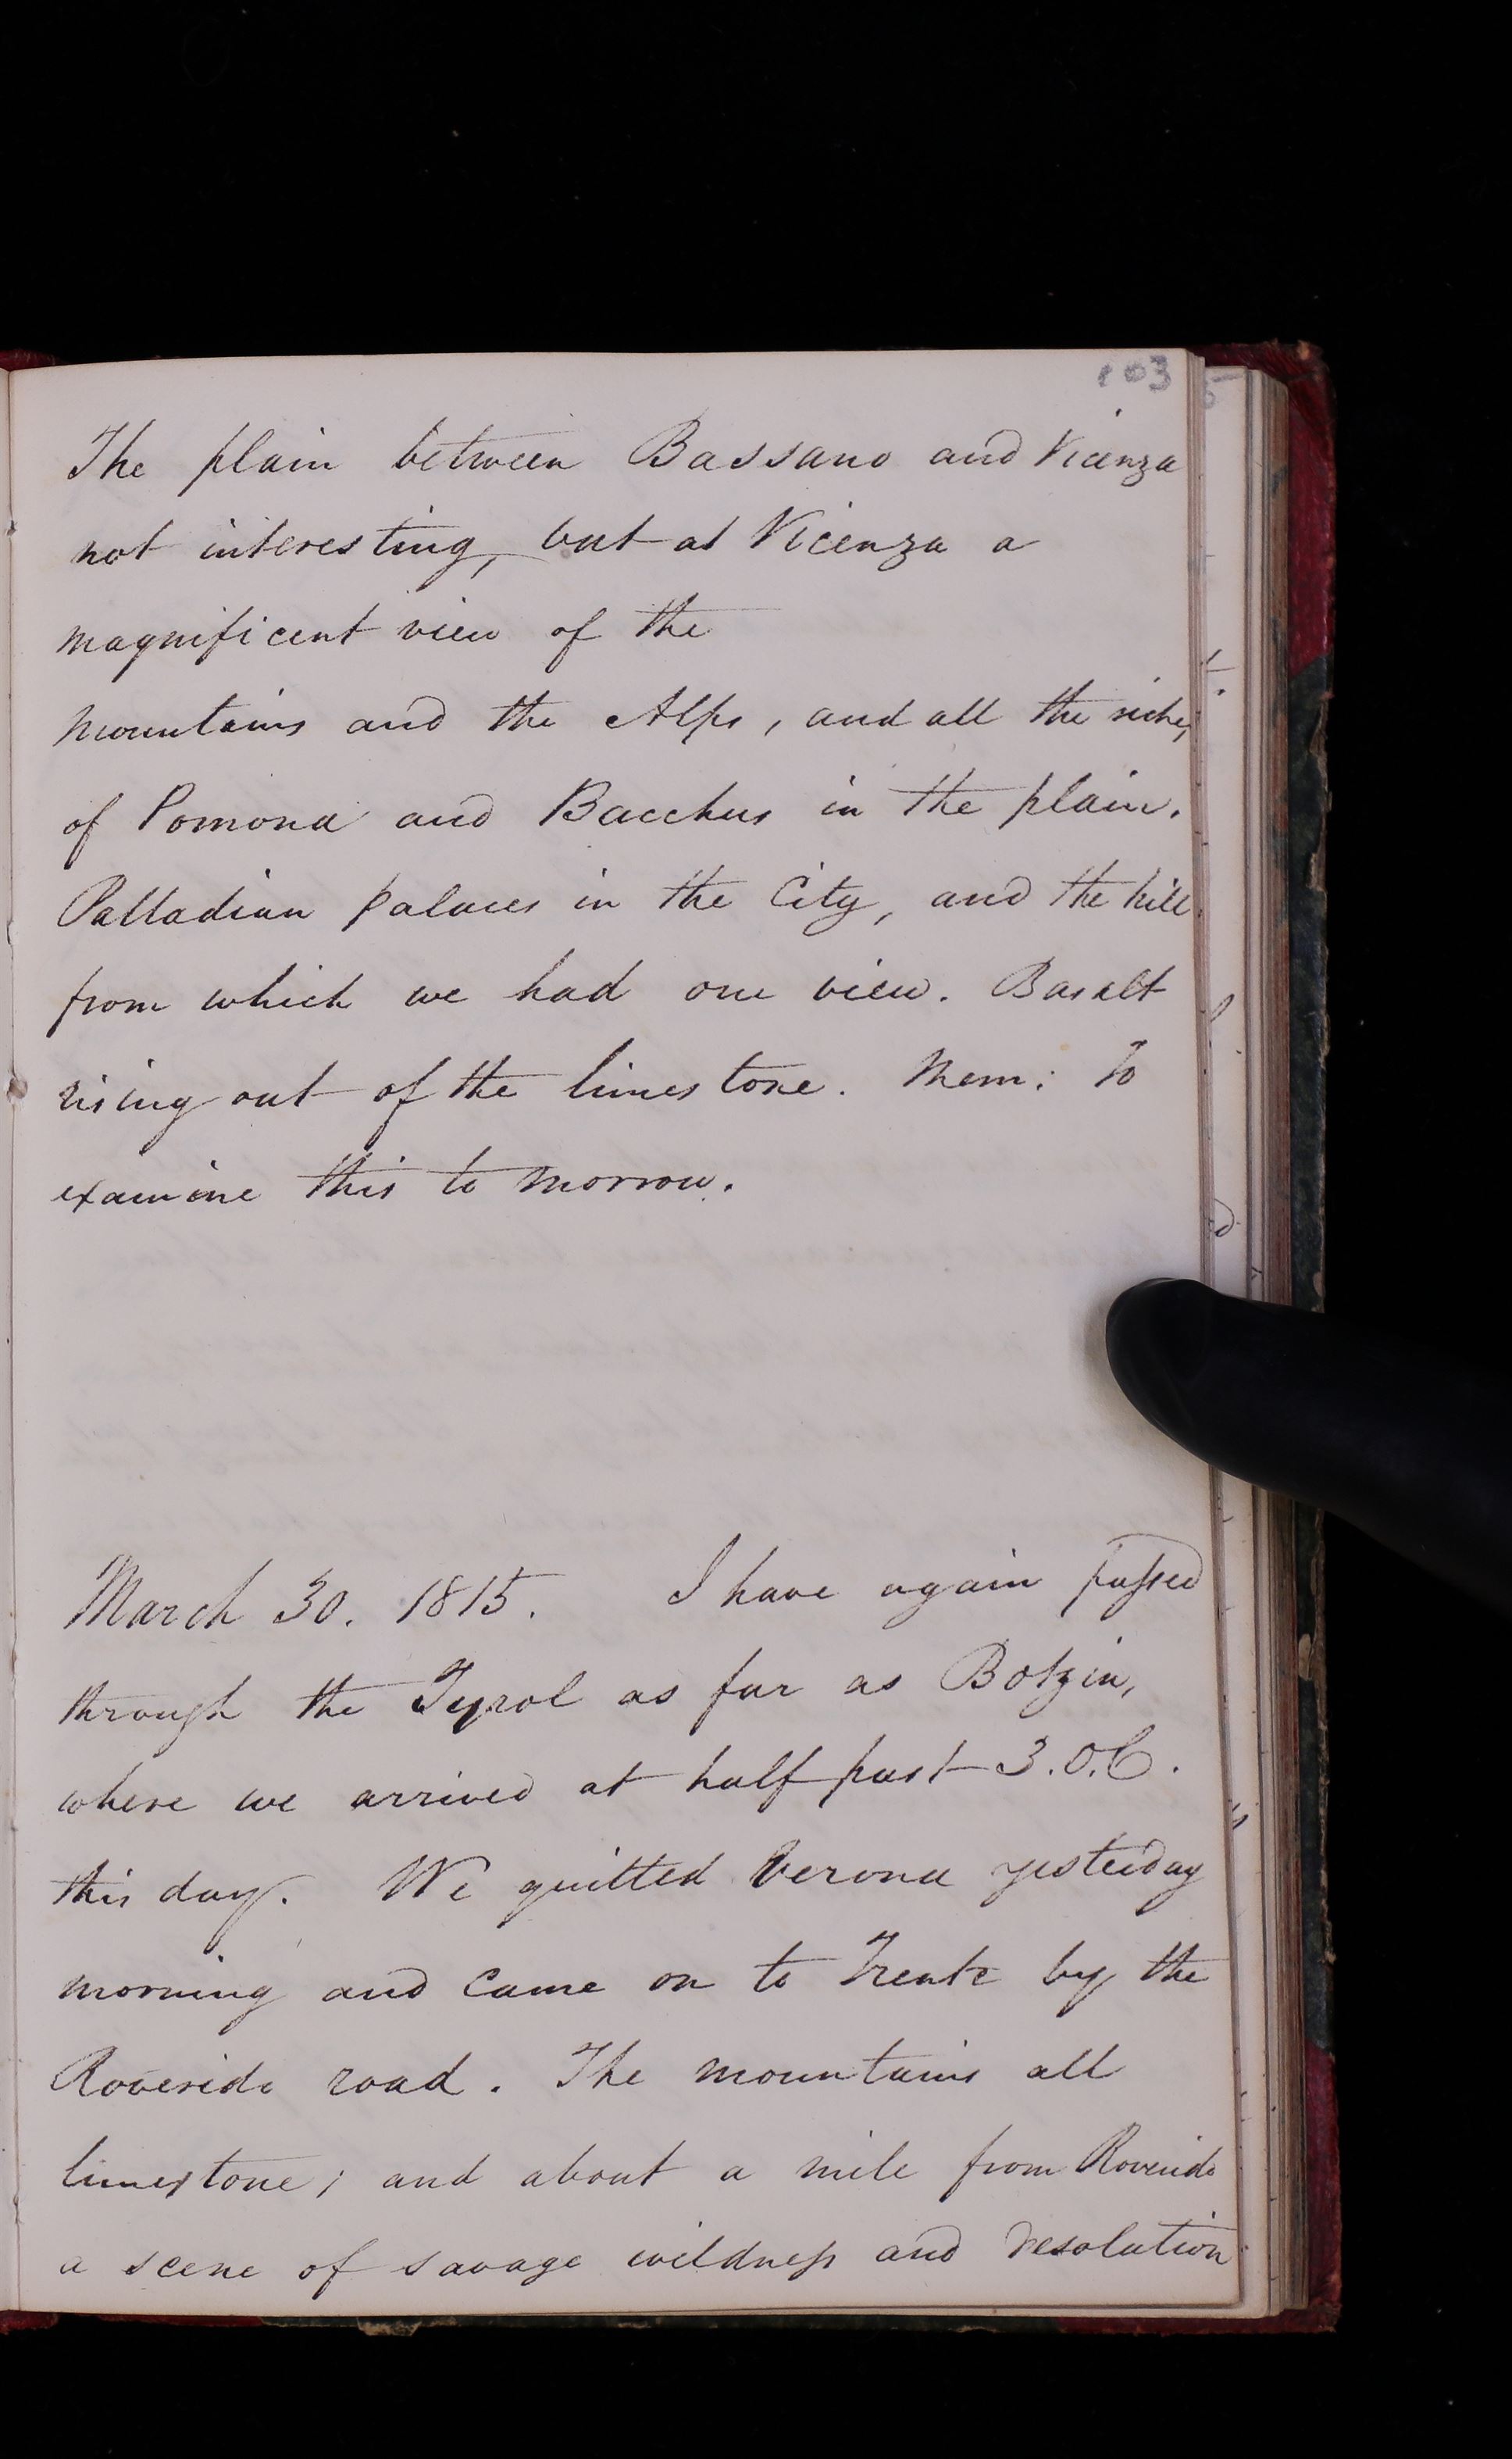 103
The plain between Bassano and Vicenza
not interesting, but at Vicenza a
magnificent view of the
mountains and the Alps, and all the riches
of Pomona and Bacchus in the plain.
Palladian palaces in the City, and the hill
from which we had our view. Basalt
rising out of the limestone. Mem: To
examine this to morrow.
March 30. 1815. I have again passed
through the Tyrol as far as Botzin,
where we arrived at half past 3.O.C.
this day. We quitted Verona yesterday
morning and came on to Trente by the
Roverido road. The mountains all
limestone; and about a mile from Roverido
a scene of savage wildness and desolation